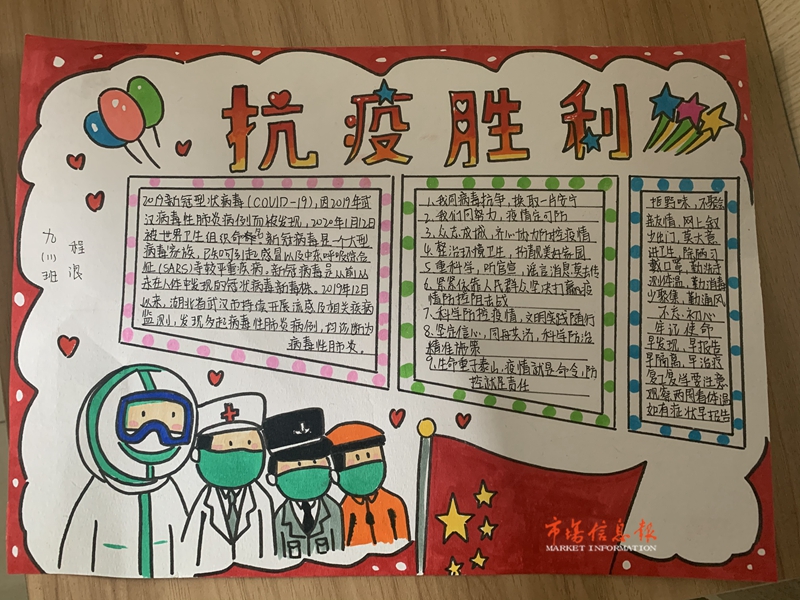 抗疫胜利
九(1)班
程浪
2019新冠型状病毒(COVID-19),因2019年武
汉病毒性肺炎病例而被发现,2020年1月12日
被世界卫生组织命名。新冠病毒是一个大型
病毒家族,已知可引起感冒以及中东呼吸综合
征(SARS)等较严重疾病,新冠病毒是以前从
未在人体中发现的冠状病毒新毒株。2019年12月
以来,湖北省武汉市持续开展流感及相关疾病
监测,发现多起病毒性肺炎病例,均诊断为
病毒性肺炎。
1.我同病毒抗争,换取一片安宁
2.我们同努力,疫情定可防
3.众志成城,齐心协力抗疫情
4.整治环境卫生,扮靓美好家园
5.重科学,听官宣,谣言消息莫去传
6.紧紧依靠人民群众坚决打赢疫
情防控阻击战
7.科学防控疫情,文明实践随行
8.坚定信心,同舟共济,科学防治
精准施策
9.生命重于泰山,疫情就是命令,防
控就是责任
拒野味,不聚会
散疫情,网上叙
少出门,莫大意
讲卫生,除陋习
戴口罩,勤洗手
测体温,勤消毒
少聚集,勤通风
不忘初心
牢记使命
早发现,早报告
早隔离,早治疗
观察两周看体温
如有症状早报告
市场信息报
MARKET INFORMATION